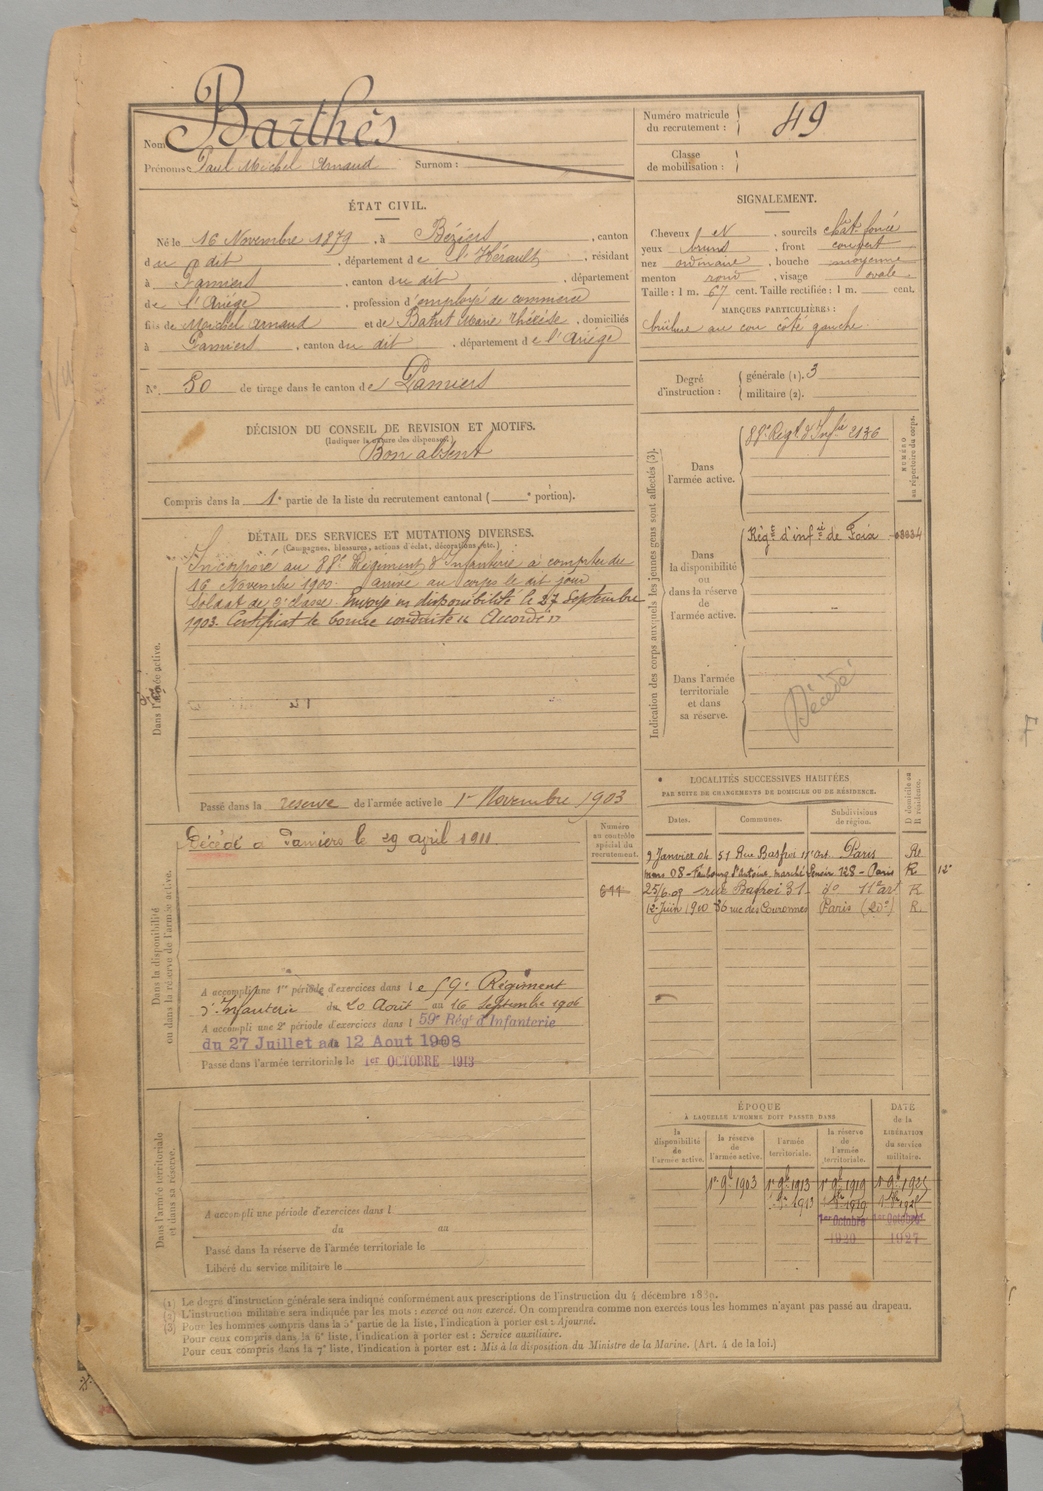 Nom Barthès
Prénoms Paul Michel Arnaud Surnom :
Numéro matricule du recrutement : 49
Classe de mobilisation :
ÉTAT CIVIL.
Né le 16 Novembre 1879, à Béziers, canton
du dit, département de l'Hérault, résidant
à Pamiers, canton du dit, département
de l'Ariège, profession d'employé de commerce
fils de Michel Arnaud et de Batut Marie Thérèse, domiciliés
à Pamiers, canton du dit, département de l'Ariège
N° 50 de tirage dans le canton de Pamiers
SIGNALEMENT.
Cheveux N, sourcils chât. foncé
yeux bruns, front couvert
nez ordinaire, bouche moyenne
menton rond, visage ovale
Taille : 1 m. 67 cent. Taille rectifiée : 1 m. cent.
MARQUES PARTICULIÈRES :
brûlure au cou côté gauche.
Degré d'instruction : générale (1). 3
militaire (2).
DÉCISION DU CONSEIL DE REVISION ET MOTIFS.
(Indiquer la nature des dispenses)
Bon absent
Compris dans la 1e partie de la liste du recrutement cantonal ( e portion).
DÉTAIL DES SERVICES ET MUTATIONS DIVERSES.
(Campagnes, blessures, actions d'éclat, décorations, etc.)
Dans l'armée active.
Incorporé au 88e Régiment d'Infanterie à compter du
16 Novembre 1900. Arrivé au corps le dit jour
Soldat de 2e classe. Envoyé en disponibilité le 27 Septembre
1903. Certificat de bonne conduite "Accordé"
Passé dans la réserve de l'armée active le 1er Novembre 1903
Indication des corps auxquels les jeunes gens sont affectés (3).
NUMÉRO au répertoire du corps.
Dans l'armée active.
88e Régt d'Infie 2136
Dans la disponibilité ou dans la réserve de l'armée active.
Régt d'infie de Foix 08034
Dans l'armée territoriale et dans sa réserve.
Décédé
Dans la disponibilité ou dans la réserve de l'armée active.
Numéro au contrôle spécial du recrutement.
Décédé à Pamiers le 29 avril 1911
644
A accompli une 1re période d'exercices dans le 59e Régiment
d'Infanterie du 20 Août au 16 Septembre 1906
A accompli une 2e période d'exercices dans l 59e Régt d'Infanterie
du 27 Juillet au 12 Aout 1908
Passé dans l'armée territoriale le 1er OCTOBRE 1913
LOCALITÉS SUCCESSIVES HABITÉES
PAR SUITE DE CHANGEMENTS DE DOMICILE OU DE RÉSIDENCE.
Dates. Communes. Subdivisions de région. D domicile ou R résidence.
9 Janvier 04 51 Rue Basfroi 11e arr. Paris Re
mars 08 - Faubourg St Antoine, marché Lenoir 128 - Paris R 12e
25/6.09 rue Basfroi 31 do 11e arr R
12 Juin 1910 36 rue des Couronnes Paris (20e) R.
Dans l'armée territoriale et dans sa réserve.
A accompli une période d'exercices dans l
du au
Passé dans la réserve de l'armée territoriale le
Libéré du service militaire le
ÉPOQUE
À LAQUELLE L'HOMME DOIT PASSER DANS
DATE de la LIBÉRATION du service militaire.
la disponibilité de l'armée active. la réserve de l'armée active. l'armée territoriale. la réserve de l'armée territoriale.
1er 9bre 1903 1er 9bre 1913 1er 9bre 1919 1er 9bre 1925
1913 1919
1er Octobre 1er Octobre
1920 1927
(1) Le degré d'instruction générale sera indiqué conformément aux prescriptions de l'instruction du 4 décembre 1889.
(2) L'instruction militaire sera indiquée par les mots : exercé ou non exercé. On comprendra comme non exercés tous les hommes n'ayant pas passé au drapeau.
(3) Pour les hommes compris dans la 5e partie de la liste, l'indication à porter est : Ajourné.
Pour ceux compris dans la 6e liste, l'indication à porter est : Service auxiliaire.
Pour ceux compris dans la 7e liste, l'indication à porter est : Mis à la disposition du Ministre de la Marine. (Art. 4 de la loi.)